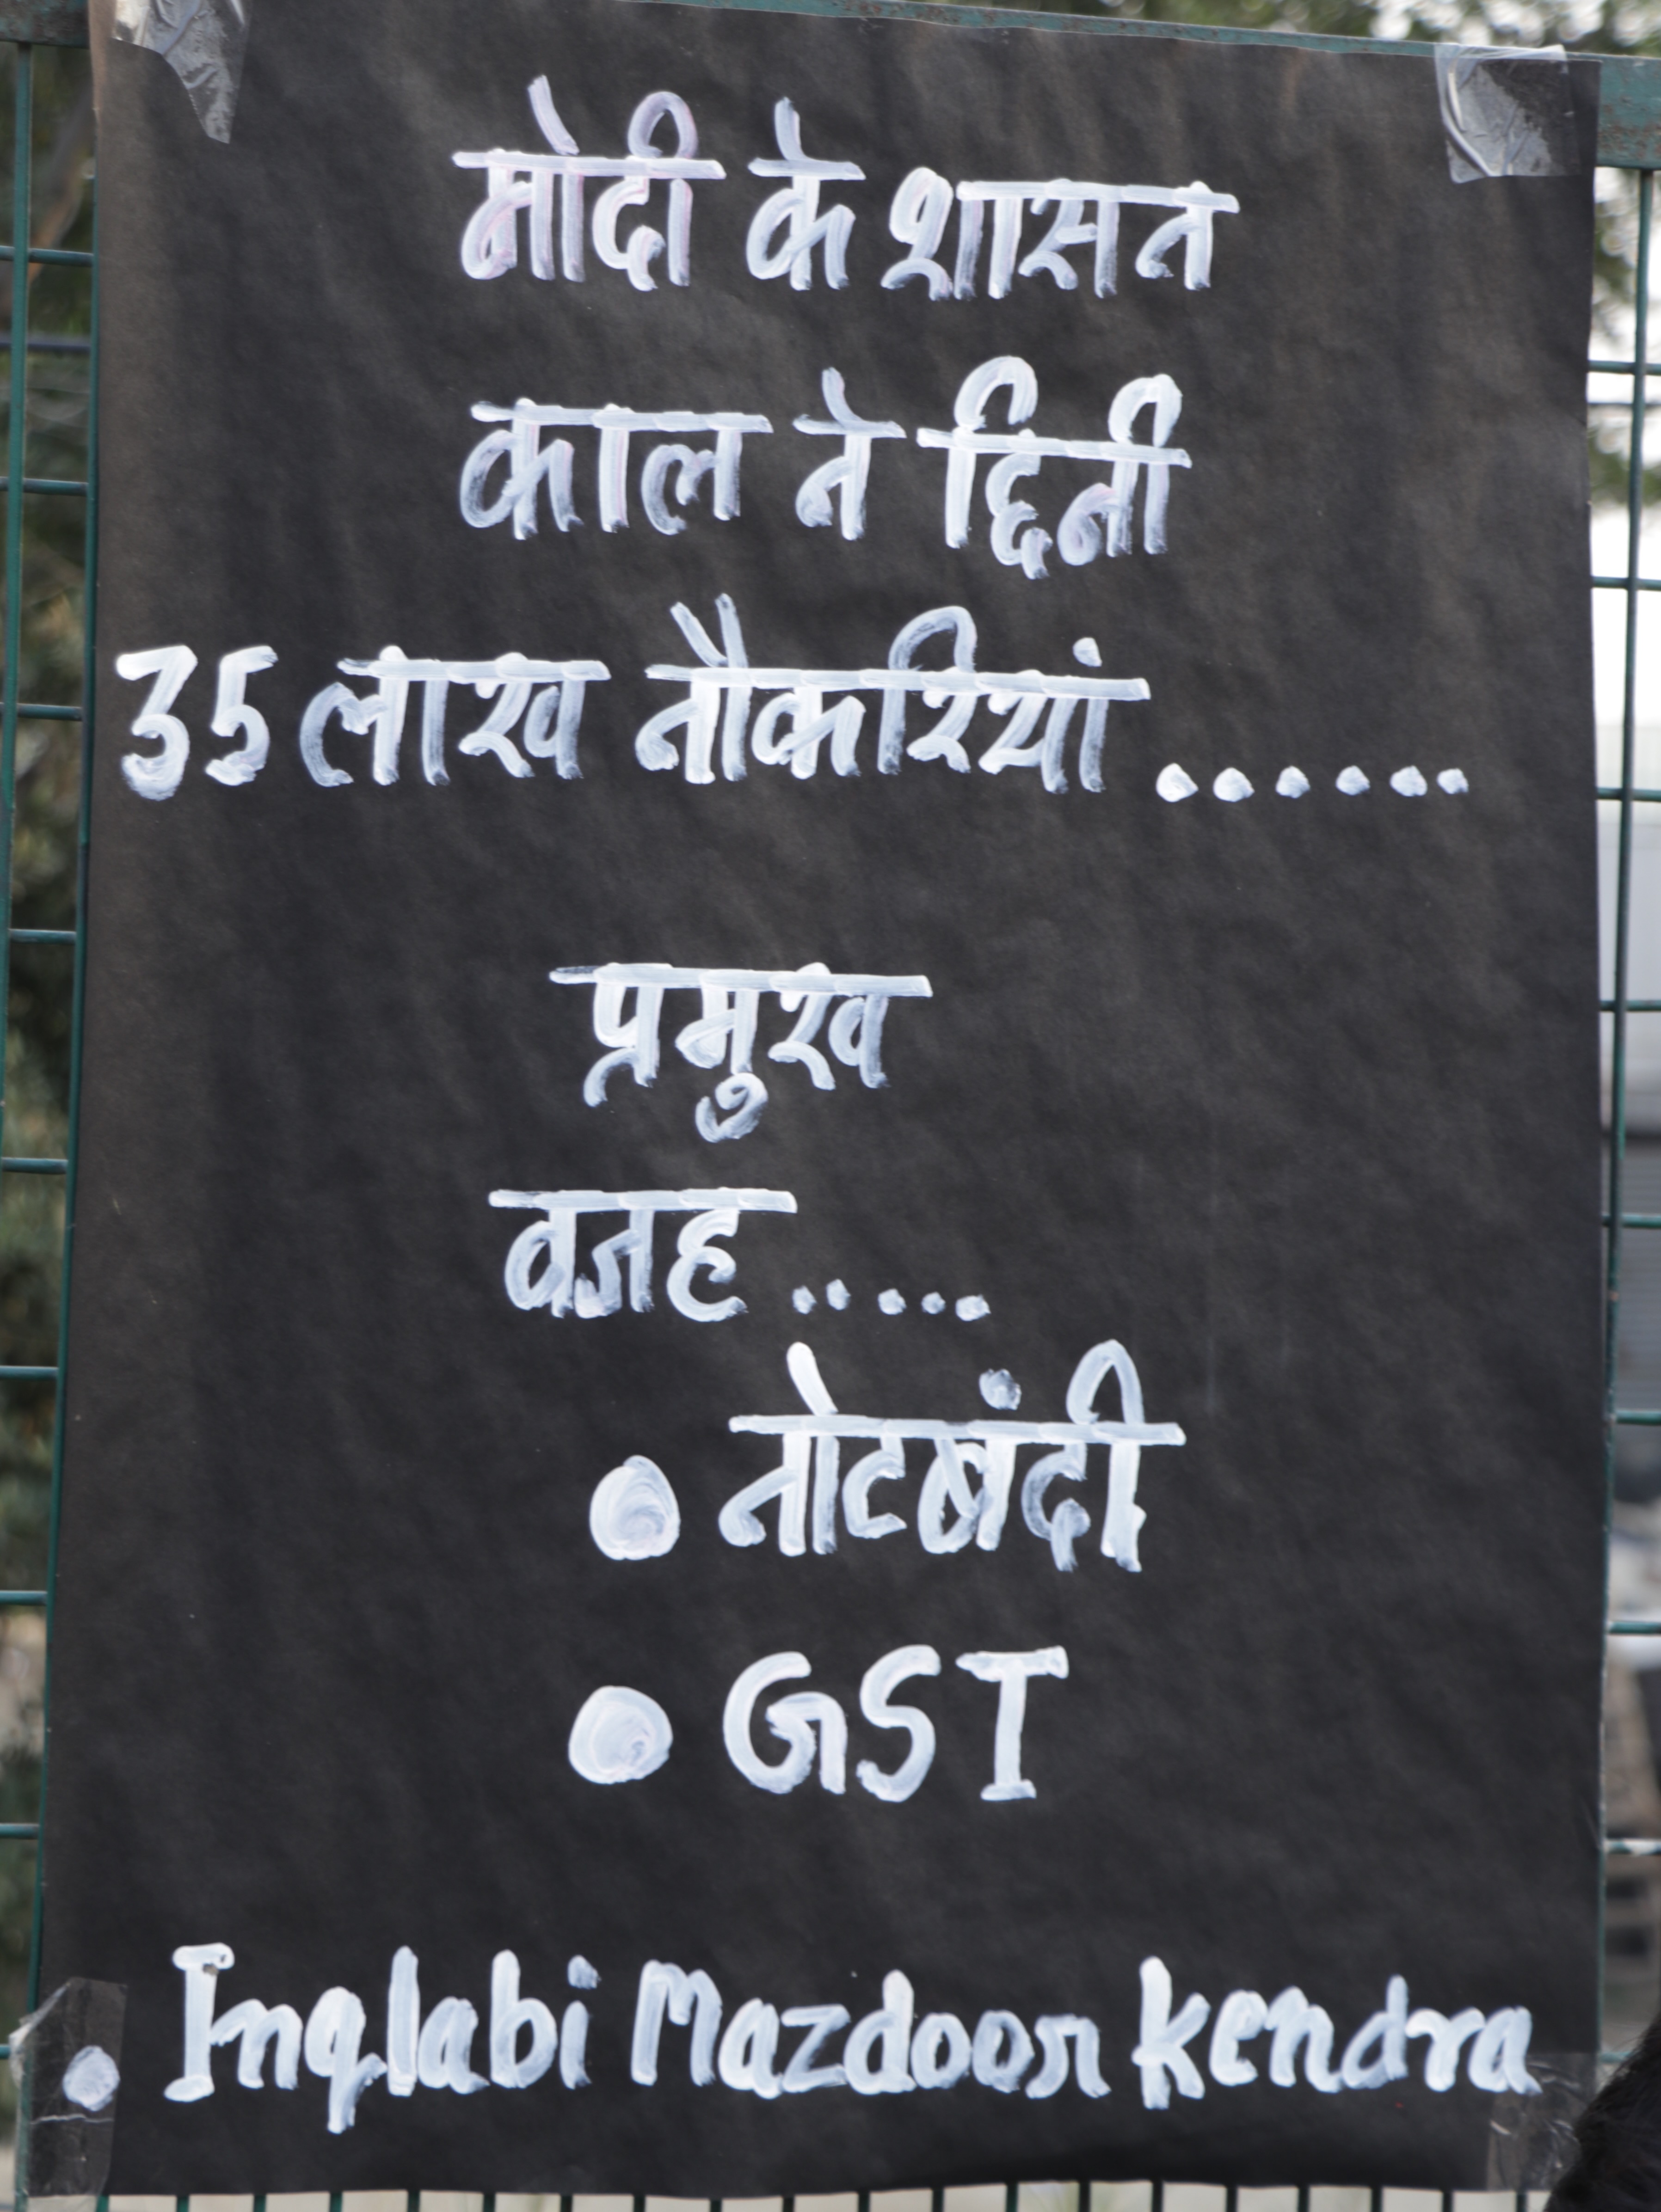 मोदी के शासन
काल ने द्दिनी
35 लाख नौकरियां......
प्रमुख
वजह.....
• नोटबंदी
• GST
• Inqlabi Mazdoor Kendra